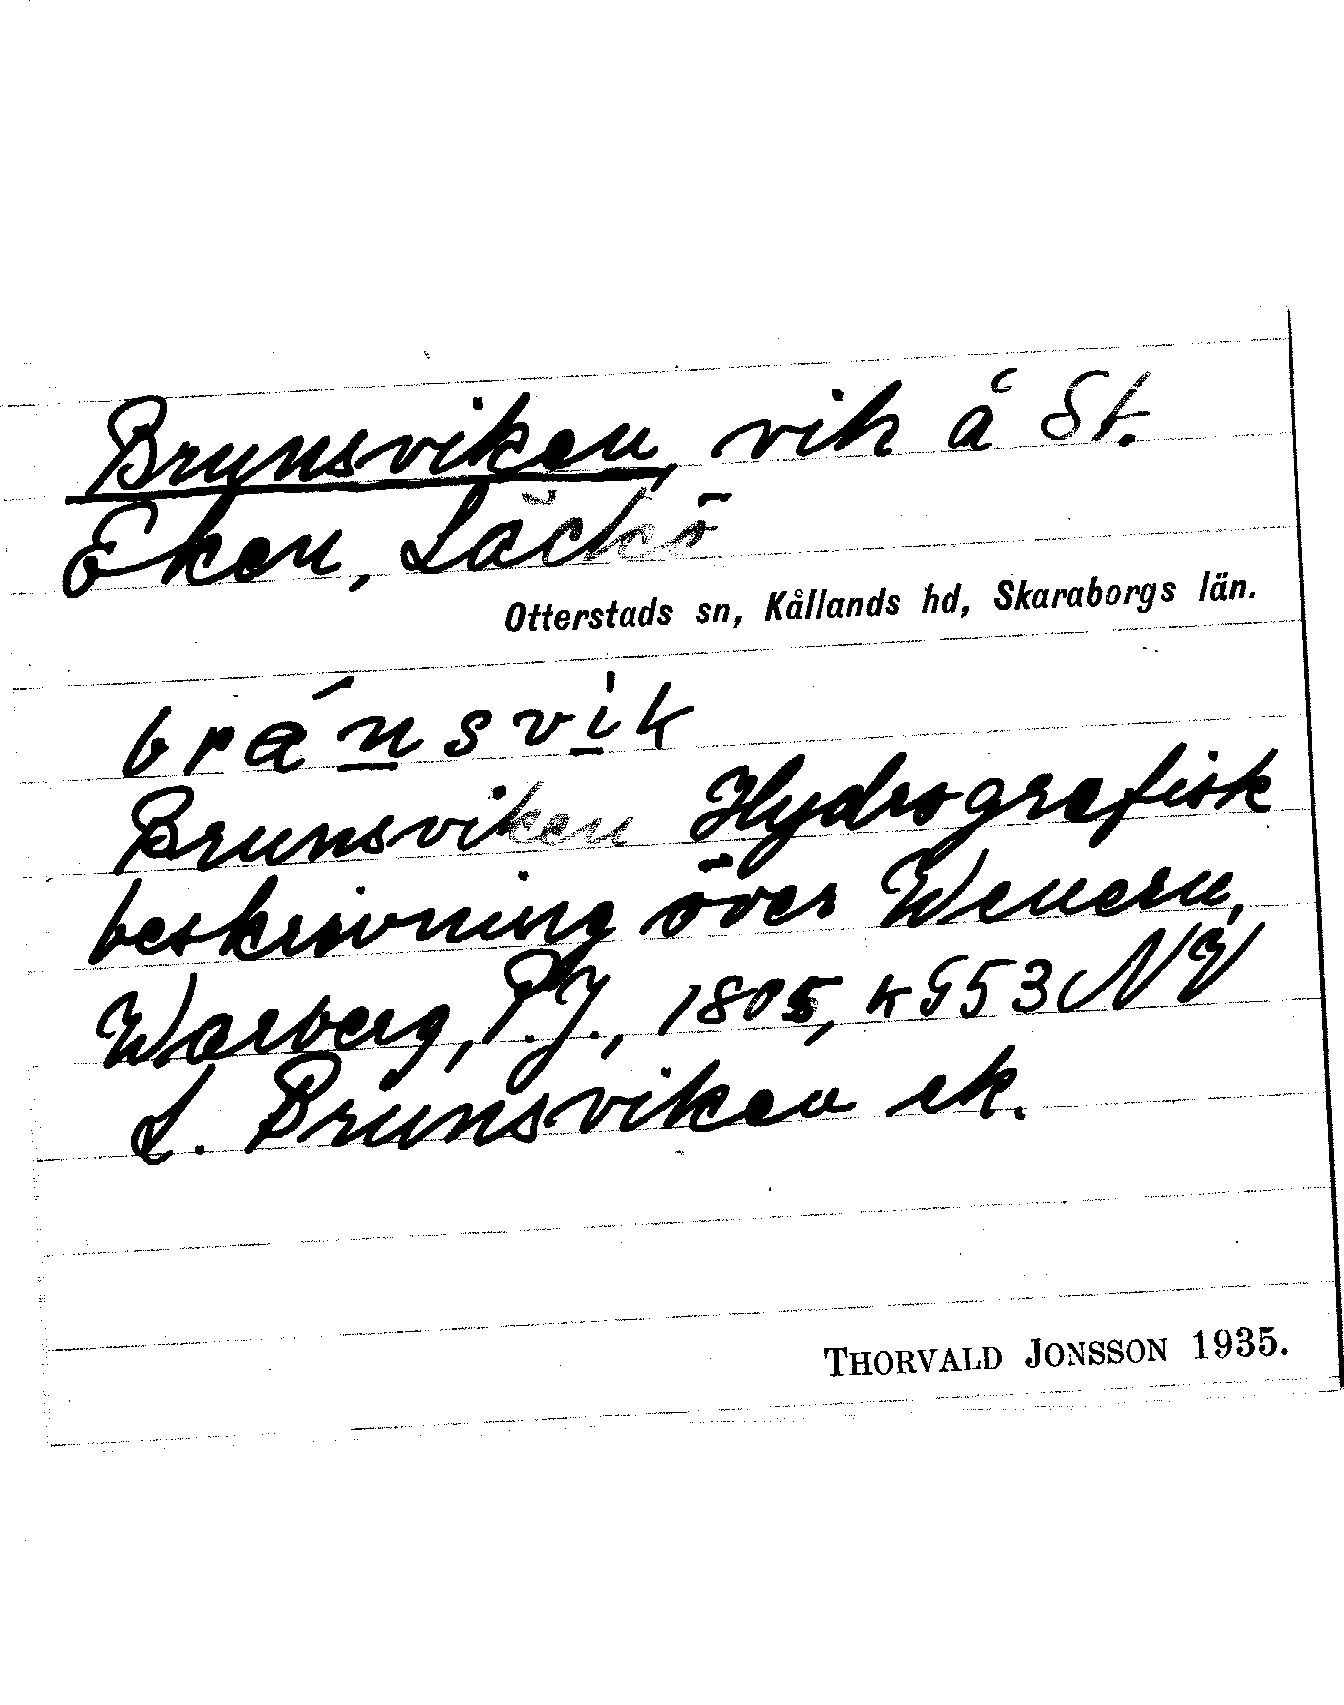 Brunsviken, vik å St.
Eken, Läckö
Otterstads sn, Kållands hd, Skaraborgs län.
bránsvik
Brunsviken Hydrografisk
beskrivning över Wenern,
Warberg, P.J., 1805, k G53 NV
L. Brunsviken ek.
THORVALD JONSSON 1935.